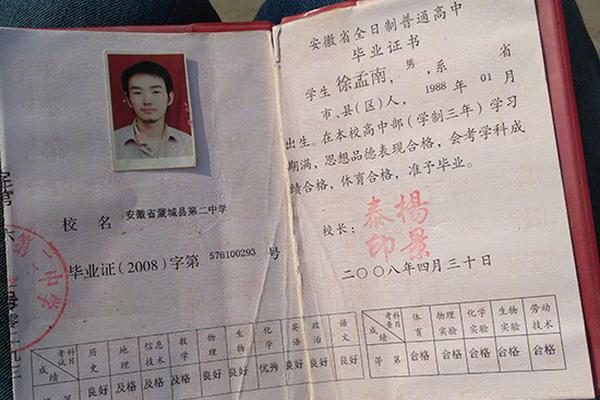 校名 安徽省蒙城县第二中学
毕业证(2008)字第 576100293 号
科目 考试 成绩 历史 地理 信息技术 数学 物理 生物 化学 英语 政治 语文
等第 良好 及格 及格 及格 良好 良好 优秀 良好 良好 良好
第二中学
安徽省全日制普通高中
毕业证书
学生 徐孟南，男，系 省
市、县(区)人，1988 年 01 月
出生。在本校高中部(学制三年)学习
期满，思想品德表现合格，会考学科成
绩合格，体育合格，准予毕业。
校长： 楊景泰印
二〇〇八年四月三十日
科目 考查 成绩 体育 物理实验 化学实验 生物实验 劳动技术
等第 合格 合格 合格 合格 合格